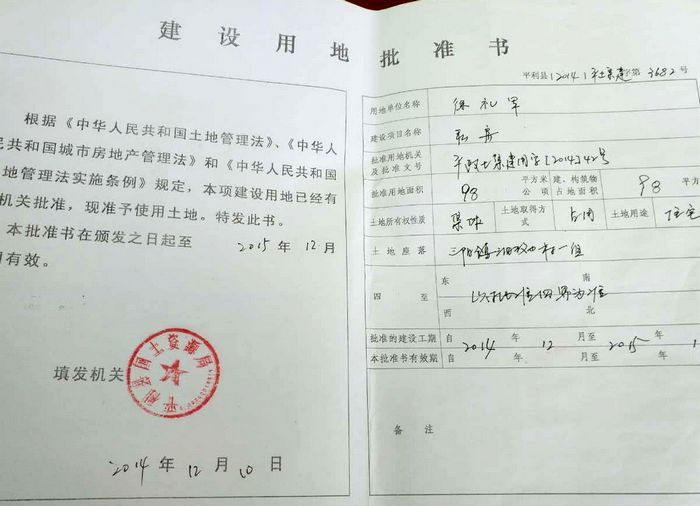 建设用地批准书
根据《中华人民共和国土地管理法》、《中华人
民共和国城市房地产管理法》和《中华人民共和国
地管理法实施条例》规定，本项建设用地已经有
机关批准，现准予使用土地。特发此书。
本批准书在颁发之日起至 2015 年 12 月
有效。
平利县国土资源局
填发机关
2014 年 12 月 10 日
平利县[2014]平土集建字第 3682 号
用地单位名称 徐礼军
建设项目名称 私房
批准用地机关及批准文号 土集建用字[2014]42号
批准用地面积 98 平方米 公顷 建、构筑物占地面积 98 平方
土地所有权性质 集体 土地取得方式 占用 土地用途 住宅
土地座落 三阳镇 村一组
四至 东 南 西 北 以 四界为准
批准的建设工期 自 年 月至 年
2014 12 2015 1
本批准书有效期 自 年 月至 年
备注